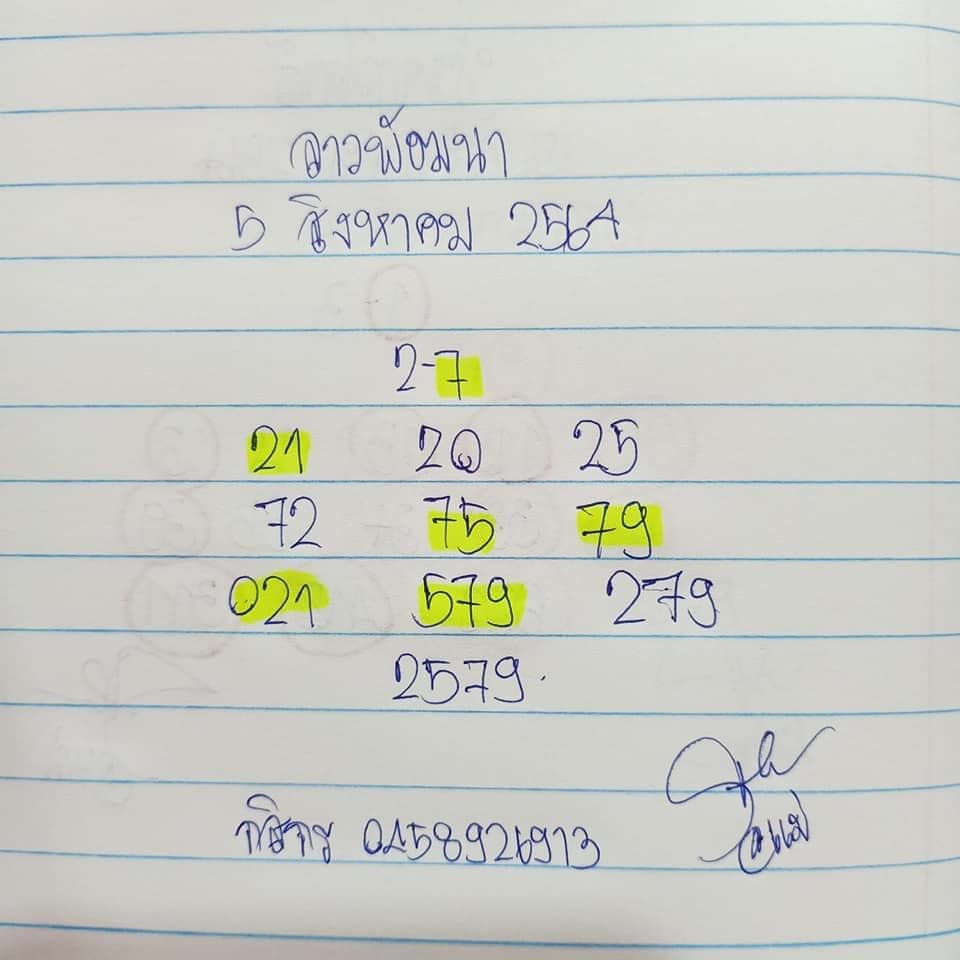 ลาวพัฒนา
5 สิงหาคม 2564
2-7
21 20 25
72 75 79
021 579 279
2579.
กสิกร 0458926913